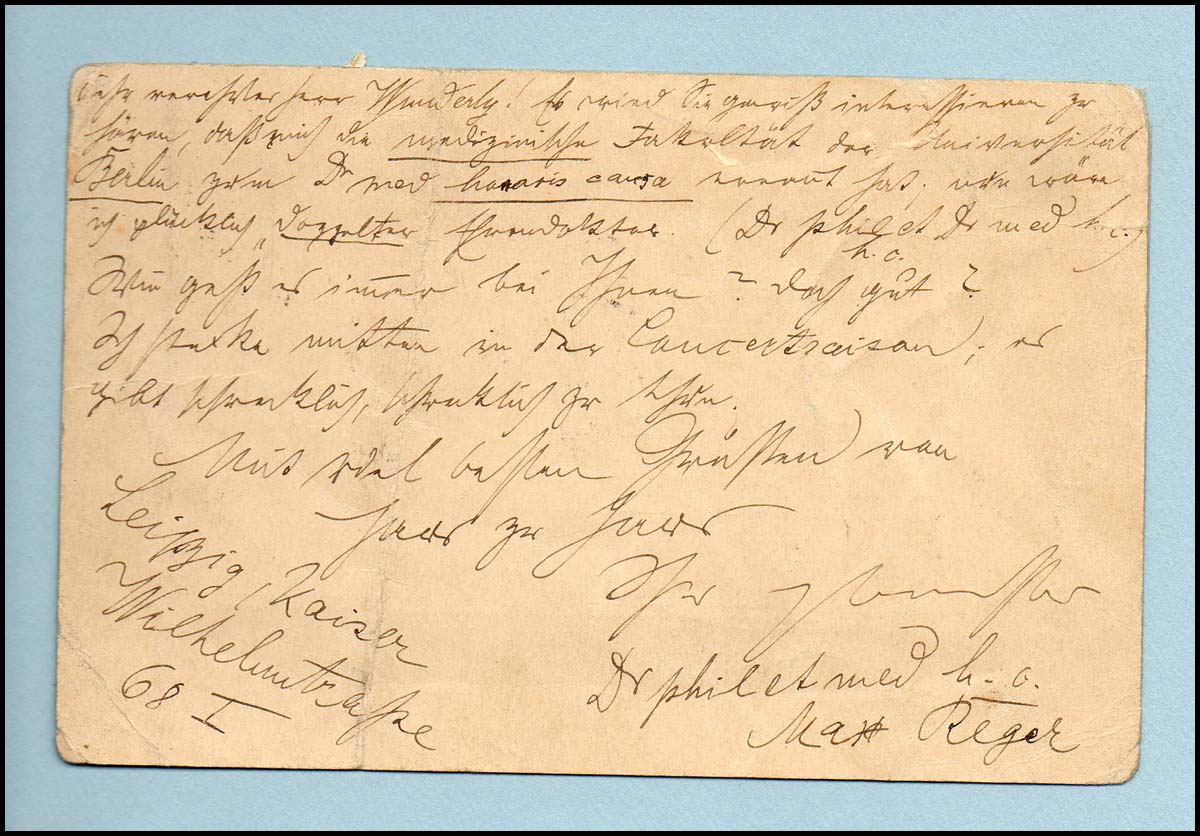 Sehr verehrter Herr Wunderly! Es wird Sie gewiß interessieren zu
hören, daß mich die medizinische Fakultät der Universität
Berlin zum Dr med honoris causa ernannt hat; nun wäre
ich glücklich „doppelter Ehrendoktor. (Dr phil et Dr med h.c.)
h. c.
Wie geht es immer bei Ihnen? doch gut?
Ich stecke mitten in der Concertsaison; es
gibt schrecklich, schrecklich zu thun.
Mit viel besten Grüßen von
Haus zu Haus
Ihr
Dr phil et med h. c.
Max Reger
Leipzig, Kaiser
Wilhelmstraße
68 I